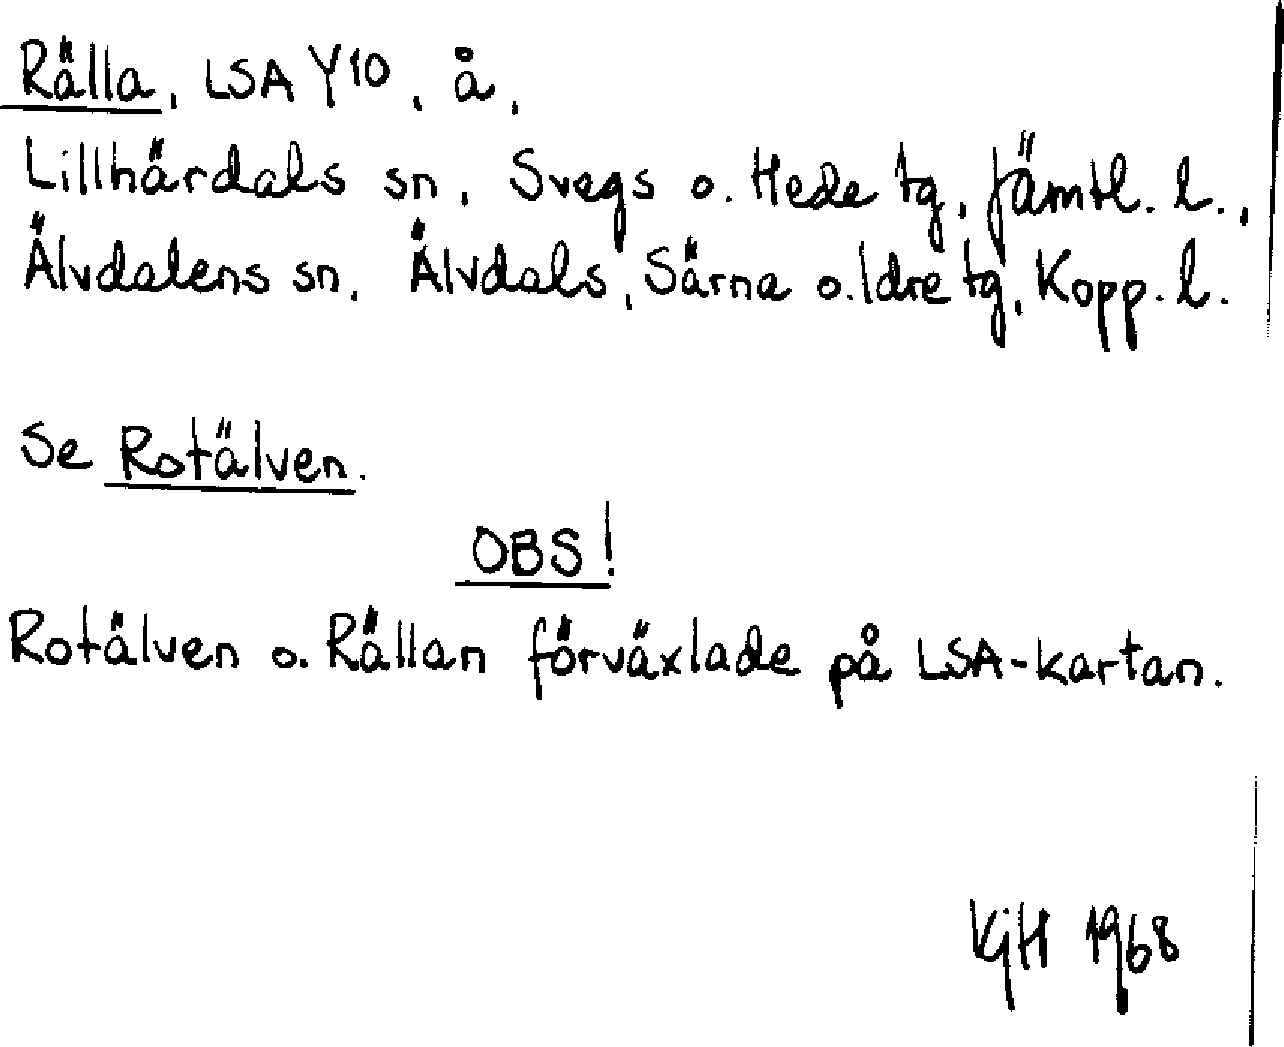 Rälla, LSA Y10, å,
Lillhärdals sn, Svegs o. Hede tg, Jämtl. l.,
Älvdalens sn, Älvdals, Särna o. Idre tg, Kopp. l.
Se Rotälven.
OBS!
Rotälven o. Rällan förväxlade på LSA-kartan.
KjH 1968